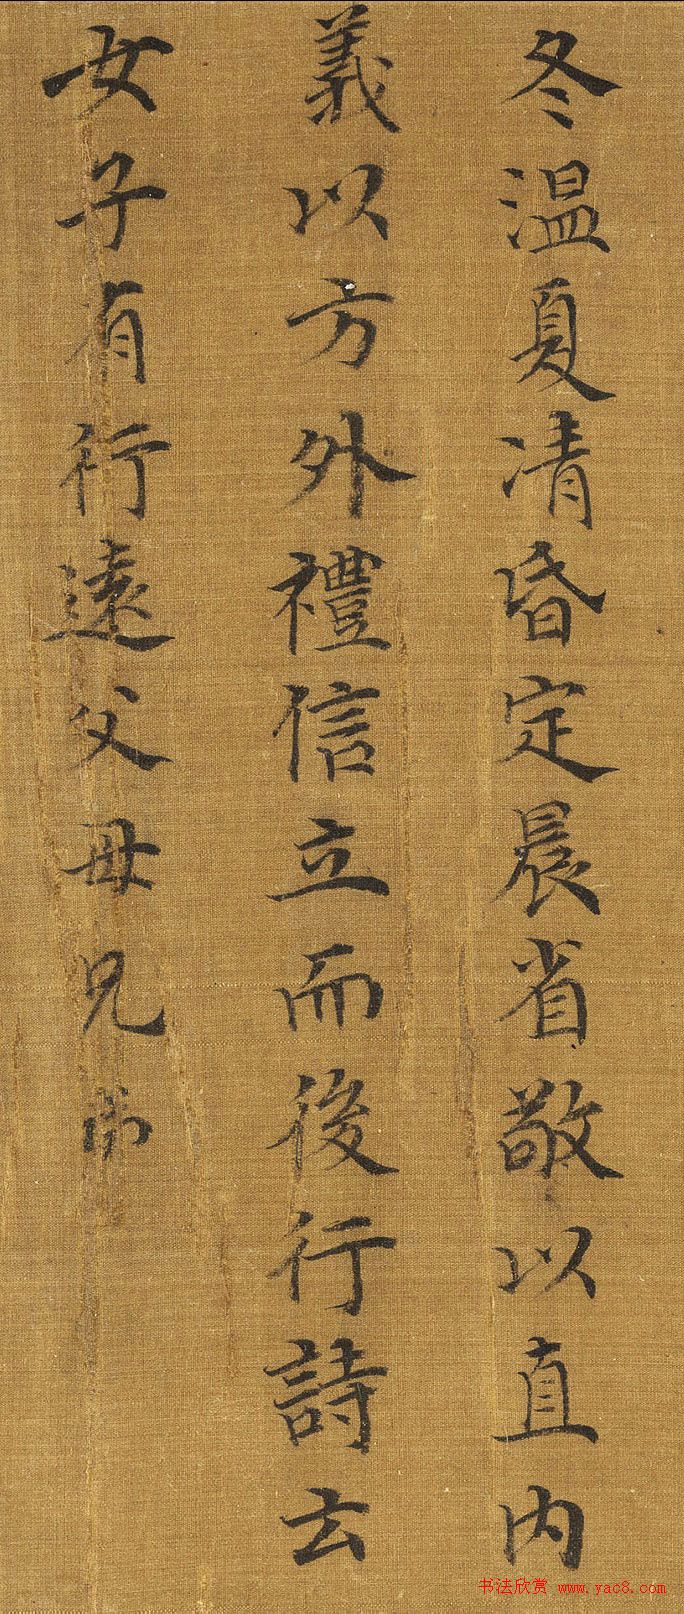 冬温夏凊昏定晨省敬以直内
義以方外禮信立而後行詩云
女子有行遠父母兄弟
书法欣赏 www.yac8.com